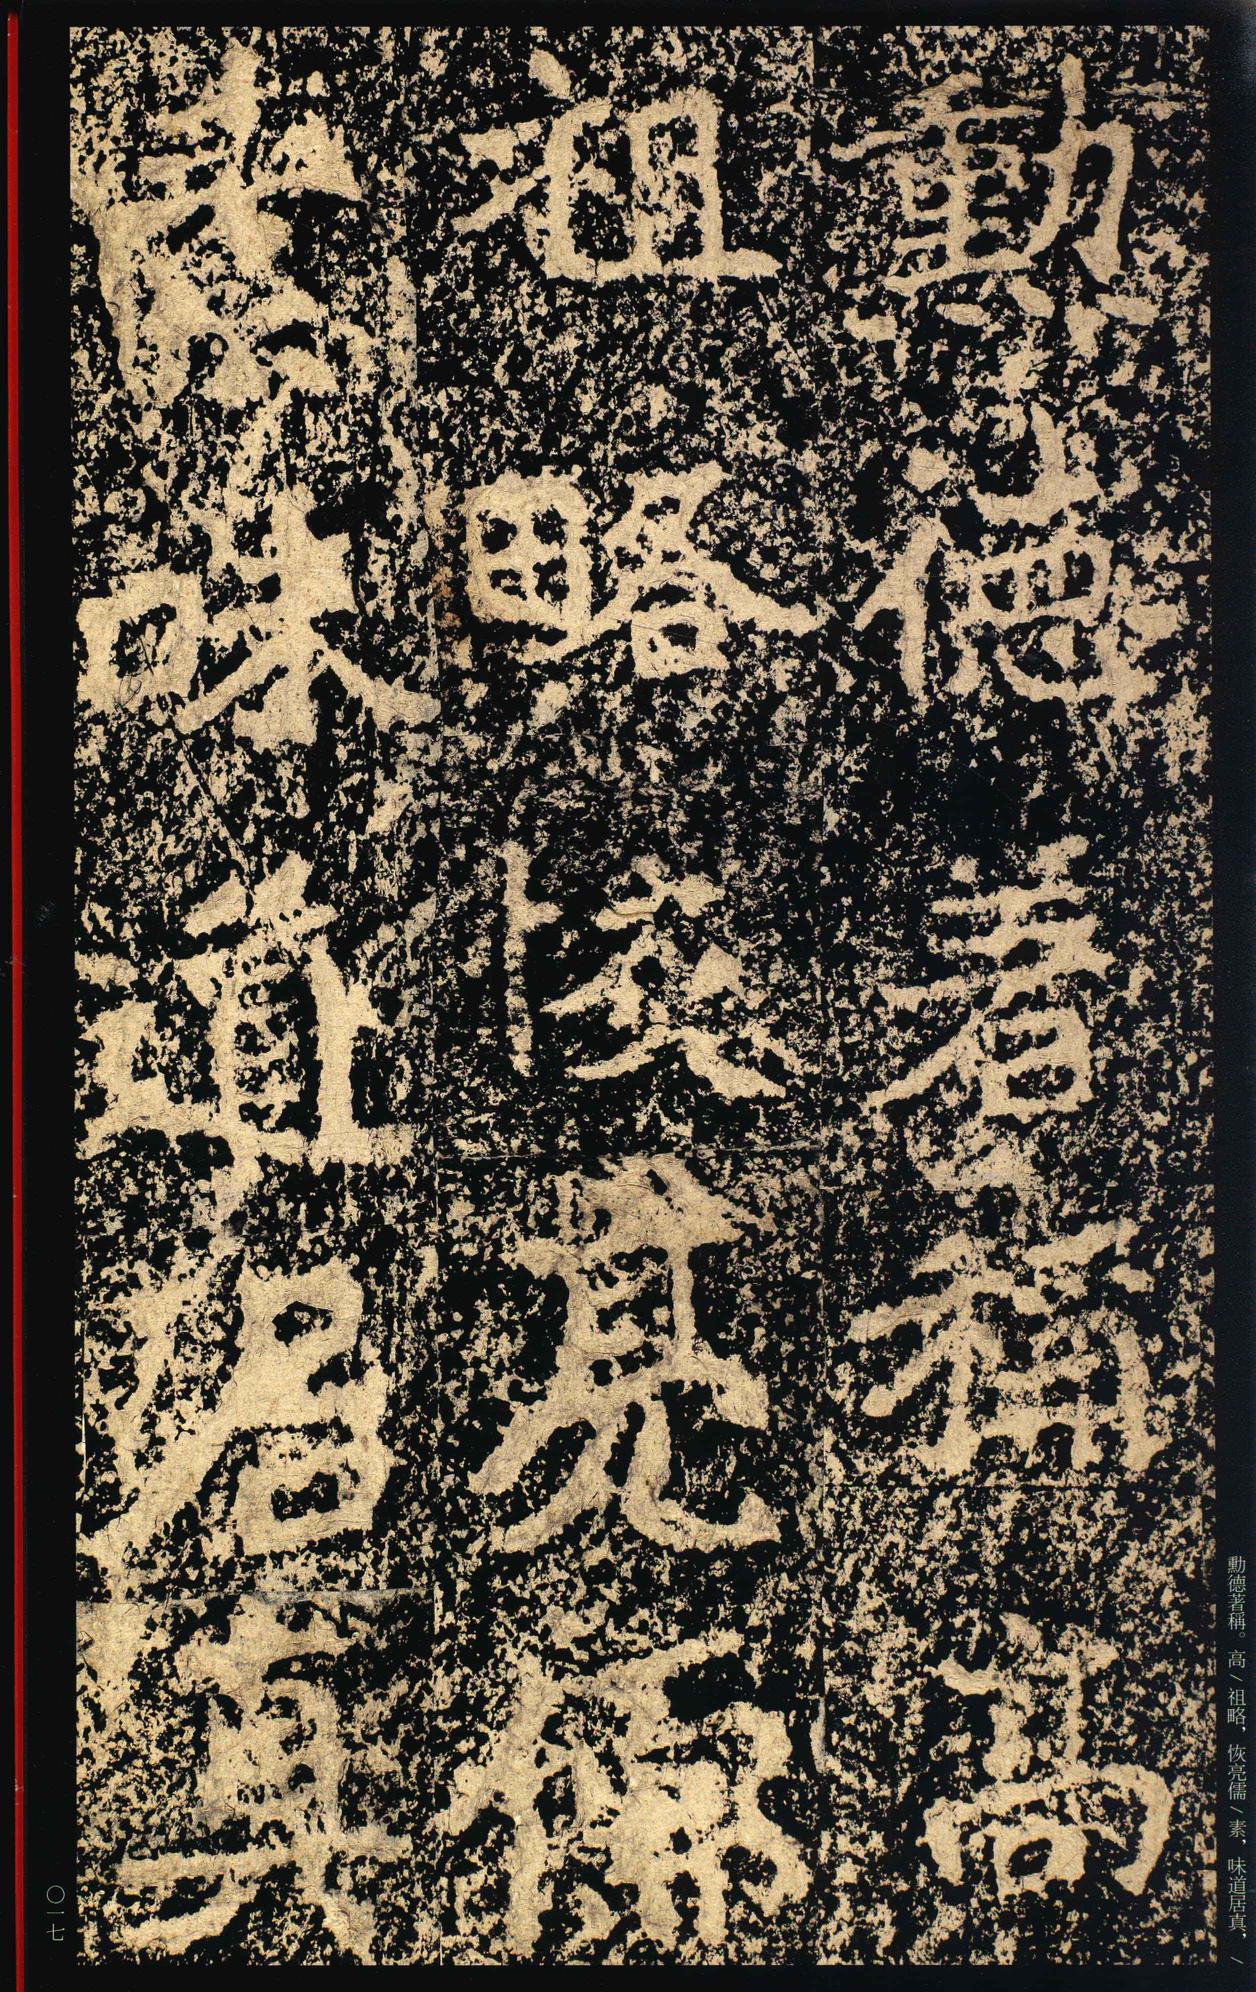 勳德著稱高
祖略恢亮儒
素味道居真
勳德著稱。高/祖略，恢亮儒/素，味道居真，/
〇一七